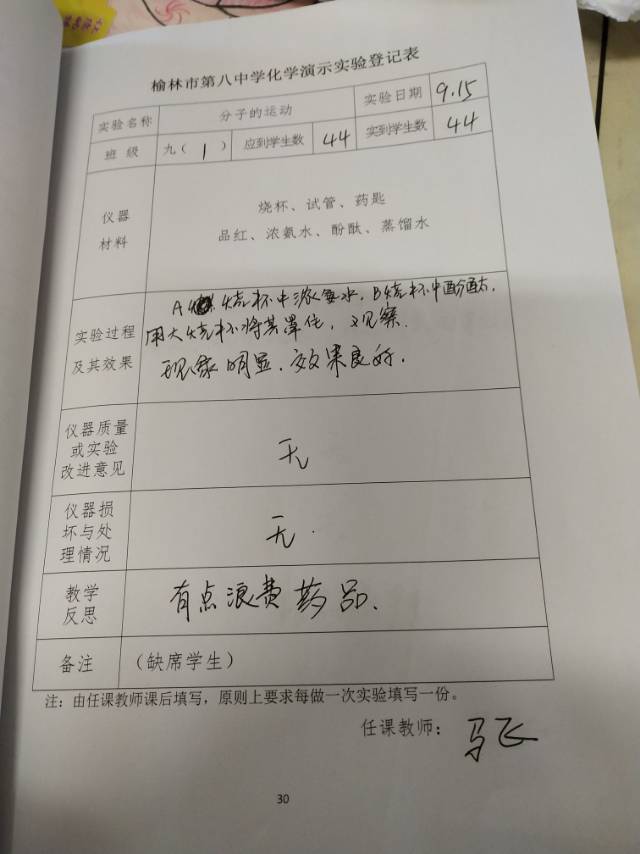 榆林市第八中学化学演示实验登记表
实验名称 分子的运动 实验日期 9.15
班 级 九（ 1 ） 应到学生数 44 实到学生数 44
仪器
材料
烧杯、试管、药匙
品红、浓氨水、酚酞、蒸馏水
实验过程
及其效果
A 烧杯中浓氨水，B烧杯中酚酞，
用大烧杯将其罩住，观察.
现象明显.效果良好.
仪器质量
或实验
改进意见
无
仪器损
坏与处
理情况
无.
教学
反思
有点浪费药品.
备注 （缺席学生）
注：由任课教师课后填写，原则上要求每做一次实验填写一份。
任课教师：马飞
30